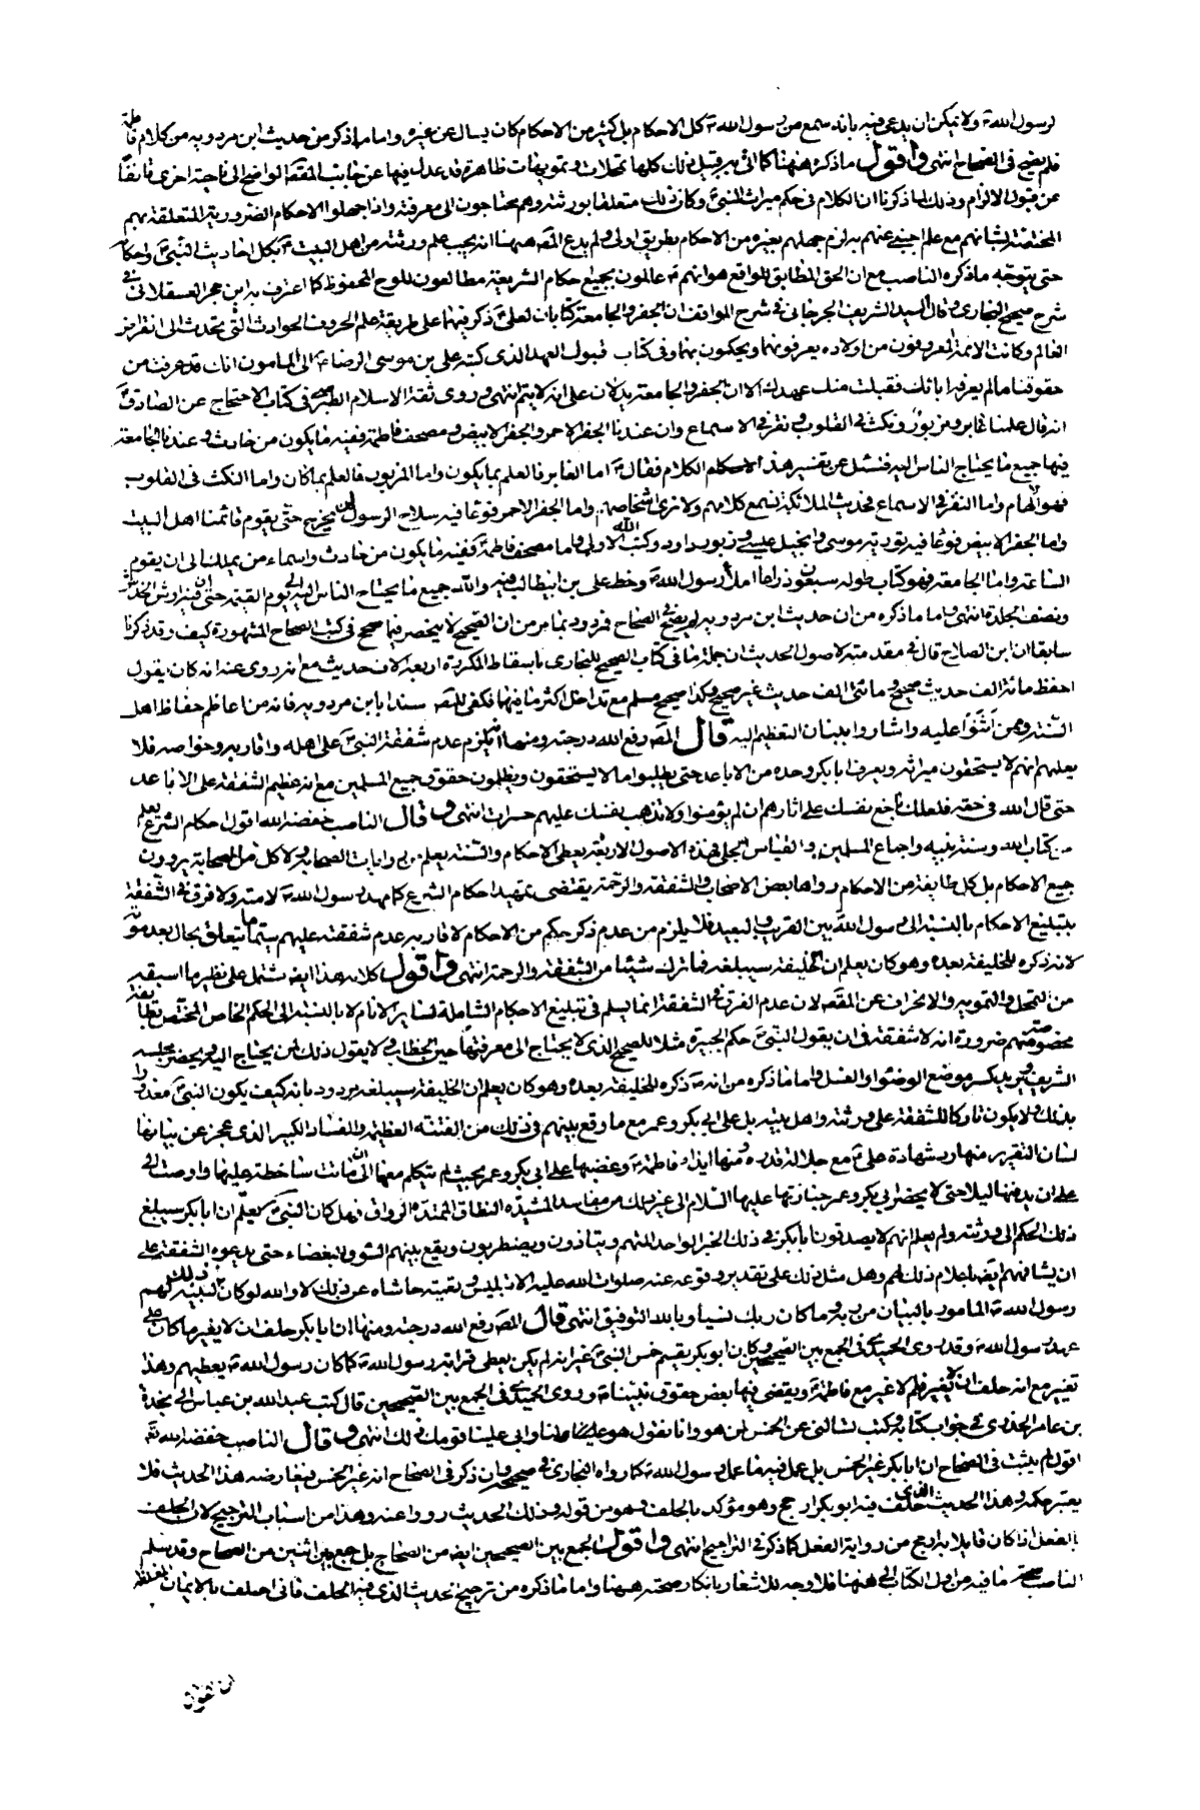 لرسول الله ص ولا يمكن ان يدعى فيه بانه سمع من رسول الله ص كل الاحكام بل كثير من الاحكام كان يسال عن غيره واما ما ذكر من حديث ابن مردويه من كلام فاطمة
فلم يصح في الصحاح انتهى واقول ما ذكره ههنا كما الى به قبيل ذلك كلها تمحلات وتمويهات ظاهرة قد عدل فيها عن جانب المقصد الواضح الى ناحية اخرى
عن قبول الالزام وذلك لما ذكرنا ان الكلام في حكم ميراث النبي ص وكان ذلك متعلقا بورثته وهم محتاجون الى معرفته واذا جهلوا الاحكام الضرورية المتعلقة بهم
المختصة بشانهم مع علم اجنبي عنهم به لزم جهلهم بغيره من الاحكام بطريق اولى ولم يدع المص ههنا انه يجب علم ورثته من اهل البيت ع بكل احاديث النبي ص واحكامه
حتى يتوجه ما ذكره الناصب مع ان الحق المطابق للواقع هو انهم ع عالمون بجميع احكام الشريعة مطالعون للوح المحفوظ كما اعترف به ابن حجر العسقلاني في
شرح صحيح البخاري وقال السيد الشريف الجرجاني في شرح المواقف ان الجفر والجامعة كتابان لعلي ع ذكر فيهما على طريقة علم الحروف الحوادث التي تحدث الى انقراض
العالم وكانت الائمة المعروفون من اولاده يعرفونهما ويحكمون بهما وفي كتاب قبول العهد الذي كتبه علي بن موسى الرضا ع الى المامون انك قد عرفت من
حقوقنا ما لم يعرفه اباؤك فقبلت منك عهدك الا ان الجفر والجامعة يدلان على انه لا يتم انتهى وروى ثقة الاسلام الطبرسي في كتاب الاحتجاج عن الصادق ع
انه قال علمنا غابر ومزبور ونكث في القلوب ونقر في الاسماع وان عندنا الجفر الاحمر والجفر الابيض ومصحف فاطمة ففيه ما يكون من حادث وعندنا الجامعة
فيها جميع ما يحتاج الناس اليه فسئل عن تفسير هذا الكلام فقال ع اما الغابر فالعلم بما يكون واما المزبور فالعلم بما كان واما النكث في القلوب
فهو الالهام واما النقر في الاسماع فحديث الملائكة نسمع كلامهم ولا نرى اشخاصهم واما الجفر الاحمر فوعا فيه سلاح الرسول لن يخرج حتى يقوم قائمنا اهل البيت
واما الجفر الابيض فوعا فيه تورية موسى وانجيل عيسى وزبور داود وكتب الله الاولى واما مصحف فاطمة ع ففيه ما يكون من حادث واسماء من يملك الى ان يقوم
الساعة واما الجامعة فهو كتاب طوله سبعون ذراعا املأ رسول الله ص وخط علي بن ابيطالب فيه والله جميع ما يحتاج الناس اليه الى يوم القيمة حتى ان فيه ارش الخدش
ونصف الجلدة انتهى واما ما ذكره من ان حديث ابن مردويه لم يصح في الصحاح فمردود بما مر من ان الصحيح لا ينحصر فيما صح في كتب الصحاح المشهورة كيف وقد ذكرنا
سابقا ان ابن الصلاح قال في مقدمته لاصول الحديث ان جملة ما في كتاب الصحيح للبخاري باسقاط المكررة اربعة الاف حديث مع انه روى عنه انه كان يقول
احفظ مائة الف حديث صحيح ومائتى الف حديث غير صحيح وكذا صحيح مسلم مع تداخل اكثر ما فيهما فكفى للمص سندا بابن مردويه فانه من اعاظم حفاظ اهل
السنة وممن اثنوا عليه واشاروا ببنان التعظيم اليه قال المص رفع الله درجته ومنها انه يلزم عدم شفقة النبي ص على اهله واقاربه وخواصه فلا
يعلمهم انهم لا يستحقون ميراثه ويعرف ابابكر وحده من الاباعد حتى يطلبوا ما لا يستحقون ويظلمون حقوق جميع المسلمين مع انه عظيم الشفقة على الاباعد
حتى قال الله في حقه فلعلك باخع نفسك على اثارهم ان لم يؤمنوا ولا تذهب نفسك عليهم حسرات انتهى وقال الناصب خفضه الله اقول حكام الشرع يعلم
من كتاب الله وسنة نبيه واجماع المسلمين والقياس الجلي فهذه الاصول الاربعة يعطى الاحكام والسنة يعلم من روايات الصحابة ولا كل من الصحابة يروون
جميع الاحكام بل كل طايفة من الاحكام رواها بعض الاصحاب والشفقة والرحمة يقتضى تمهيد احكام الشرع كما مهد رسول الله ص لامته ولا فرق في الشفقة
بتبليغ الاحكام بالنسبة الى رسول الله ص بين القريب والبعيد فلا يلزم من عدم ذكر حكم من الاحكام لاقاربه عدم شفقته عليهم سيما ما يتعلق بحال بعد موته
لانه ذكره للخليفة بعده وهو كان يعلم ان الخليفة سيبلغه فما ترك شيئا من الشفقة والرحمة انتهى واقول كلامه هذا ايضا مشتمل على نظير ما اسبقه
من التمحل والتمويه والانحراف عن المقصد لان عدم الفرق في الشفقة انما يسلم في تبليغ الاحكام الشاملة لسائر الانام لا بالنسبة الى الحكم الخاص المختص بطائفة
مخصوصة منهم ضرورة انه لا شفقة في ان يقول النبي ص حكم الجبيرة مثلا للصحيح الذي لا يحتاج الى معرفتها حين الخطاب ولا يقول ذلك لمن يحتاج اليه ويحضر مجلسه
الشريف ويريد بكسر موضع الوضوء او الغسل واما ما ذكره من انه ص ذكره للخليفة بعده وهو كان يعلم ان الخليفة سيبلغه مردود بانه كيف يكون النبي ص معذورا
بذلك ولا يكون تاركا للشفقة على ورثته واهل بيته بل على ابي بكر وعمر مع ما وقع بينهم في ذلك من الفتنة العظيمة والفساد الكبير الذي عجز عن بيانها
لسان التقرير منها رد شهادة علي ع مع جلالة قدره ومنها ايذاء فاطمة ع وغضبها على ابي بكر وعمر بحيث لم يتكلم معهما الى ان ماتت ساخطة عليهما واوصت الى
علي ان يدفنها ليلا حتى لا يحضر ابي بكر وعمر جنازتها عليها السلام الى غير ذلك من مفاسد المشيدة النطاق الممتدة الرواق فهل كان النبي ص يعلم ان ابابكر سيبلغ
ذلك الحكم الى ورثته ولم يعلم انهم لا يصدقون ابابكر في ذلك الخبر الواحد المتهم ويتاذون ويضطربون ويقع بينهم السوء والبغضاء حتى يدعوه الشفقة على
ان يشافههم ايضا باعلام ذلك لهم وهل مثل ذلك على تقدير وقوعه عنه صلوات الله عليه الا تدليس وتعمية حاشاه عن ذلك لا والله لو كان ذلك لبينه لهم
رسول الله ص المامور بالبيان من ربه وما كان ربك نسيا وبالله التوفيق انتهى قال المص رفع الله درجته ومنها ان ابابكر حلف ان لا يغير ما كان على
عهد رسول الله ص وقد روى الحميدي في الجمع بين الصحيحين وكان ابو بكر يقسم خمس النبي ص غير انه لم يكن يعطى قرابة رسول الله ص كما كان رسول الله ص يعطيهم وهذا
تغيير مع انه حلف ان لا يغير فلم لا غير مع فاطمة ع ويقضي فيها بعض حقوق نبينا ص وروى الحميدي في الجمع بين الصحيحين قال كتب عبد الله بن عباس الى نجدة
بن عامر الحروري في جواب كتابه وكتب تسالني عن الخمس لمن هو وانا نقول هو لنا وابى علينا قومك ذلك انتهى وقال الناصب خفضه الله
اقول لم يثبت في الصحاح ان ابابكر غير الخمس بل عمل فيه ما عمل رسول الله ص كما رواه البخاري في صحيحه وان ذكر في الصحاح انه غير الخمس فيعارضه هذا الحديث فلا
يعتبر حكمه وهذا الحديث الذي حلف فيه ابو بكر ارجح وهو مؤكد بالحلف وهو من قوله وذلك الحديث رووا عنه وهذا من اسباب الترجيح لان الحلف
بالفعل اذا كان قايلا به ارجح من رواية الفعل كما ذكر في التراجيح انتهى واقول الجمع بين الصحيحين ايضا من الصحاح بل جمع بين اثنين من الصحاح وقد سلم
الناصب صحة ما فيه من اول الكتاب الى ههنا فلا وجه للاشعار بانكار صحته ههنا واما ما ذكره من ترجيح الحديث الذي فيه الحلف فاني احلف بالايمان المغلظة